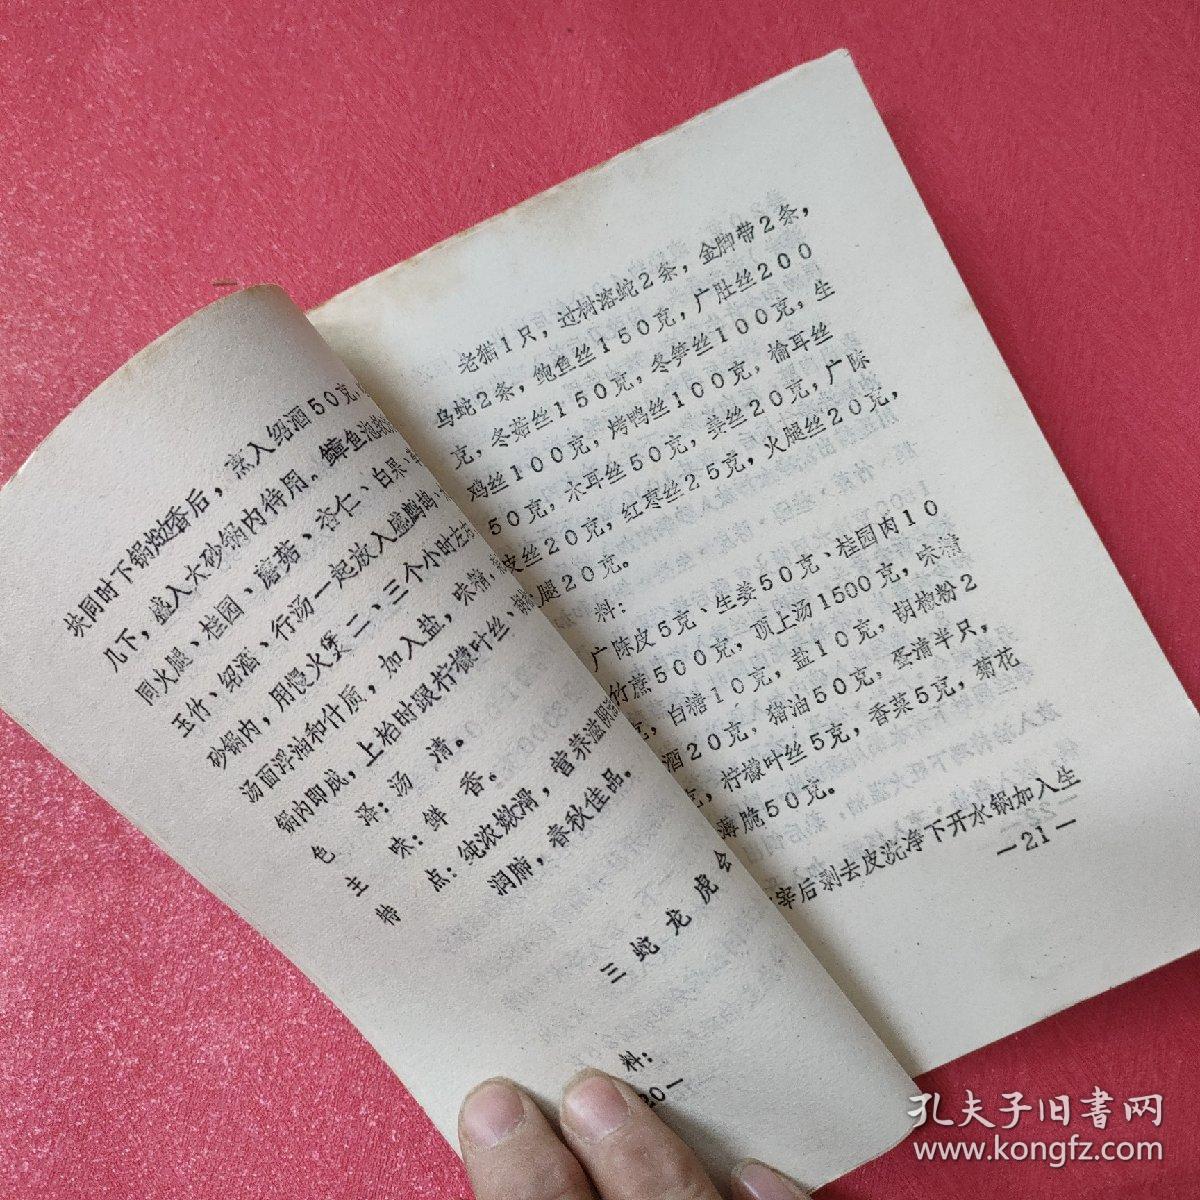 共同时下锅爆香后，烹入绍酒50克，
几下，盛入大砂锅内待用。鳄鱼
同火腿、桂园、蘑菇、杏仁、白果、
玉竹、绍酒、行汤一起放入盛鹧鸪
砂锅内，用慢火煲二、三个小时左右
汤面浮油和什质，加入盐，味精，
锅内即成，上抬时跟柠檬叶丝、
色　泽：汤　清。
主　味：鲜　香。
特　点：纯浓嫩滑，营养滋
润肺，春秋佳品。
三蛇龙虎
料：
20—
老猫1只，过树溶蛇2条，金脚带2条，
乌蛇2条，鲍鱼丝150克，广肚丝200
克，冬菇丝150克，冬笋丝100克，生
鸡丝100克，烤鸭丝100克，榆耳丝
50克，木耳丝50克，姜丝20克，广陈
皮丝20克，红枣丝25克，火腿丝20克，
腿20克。
料：
广陈皮5克、生姜50克、桂园肉10
竹蔗500克，顶上汤1500克，味精
克，白糖10克，盐10克，胡椒粉2
酒20克，猪油50克，蛋清半只，
克，柠檬叶丝5克，香菜5克，菊花
薄脆50克。
宰后剥去皮洗净下开水锅加入生
—21—
孔夫子旧書网
www.kongfz.com